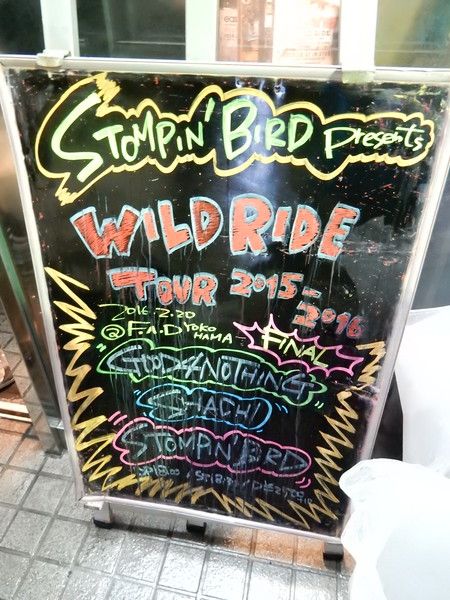 STOMPIN' BIRD Presents
WILD RIDE
TOUR 2015-
2016
2016.2.20
@F.A.D YOKO
HAMA
FINAL
GOOD4NOTHING
SHACHI
STOMPIN' BIRD